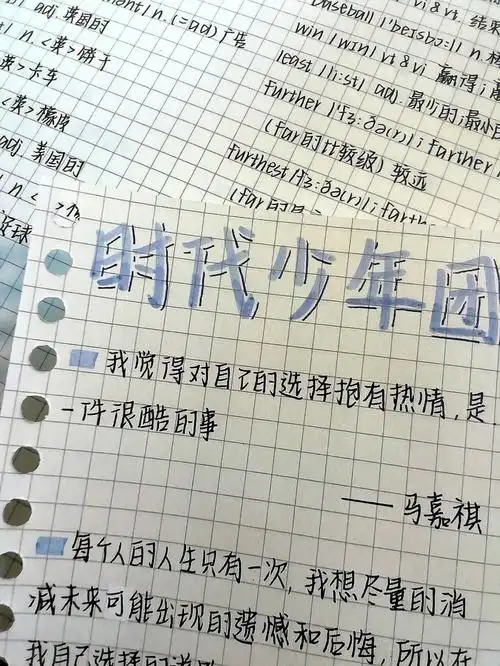 adj. 英国的
n. <英> 饼干
<英> 卡车
<英> 橡皮
adj. 美国的
n. (=ad) 广告
baseball |ˈbeɪsbɔːl| n.
vi & vt. 结果
win |wɪn| vt & vi 赢得;
least |liːst| adj. 最少的;最小
further |ˈfɜːðə(r)|; farther
(far的比较级) 较远
furthest |ˈfɜːðə(r)|; farth
(far的
时代少年团
我觉得对自己的选择抱有热情,是
一件很酷的事
——马嘉祺
每个人的人生只有一次,我想尽量的消
减未来可能出现的遗憾和后悔,所以在
我自己选择的道路